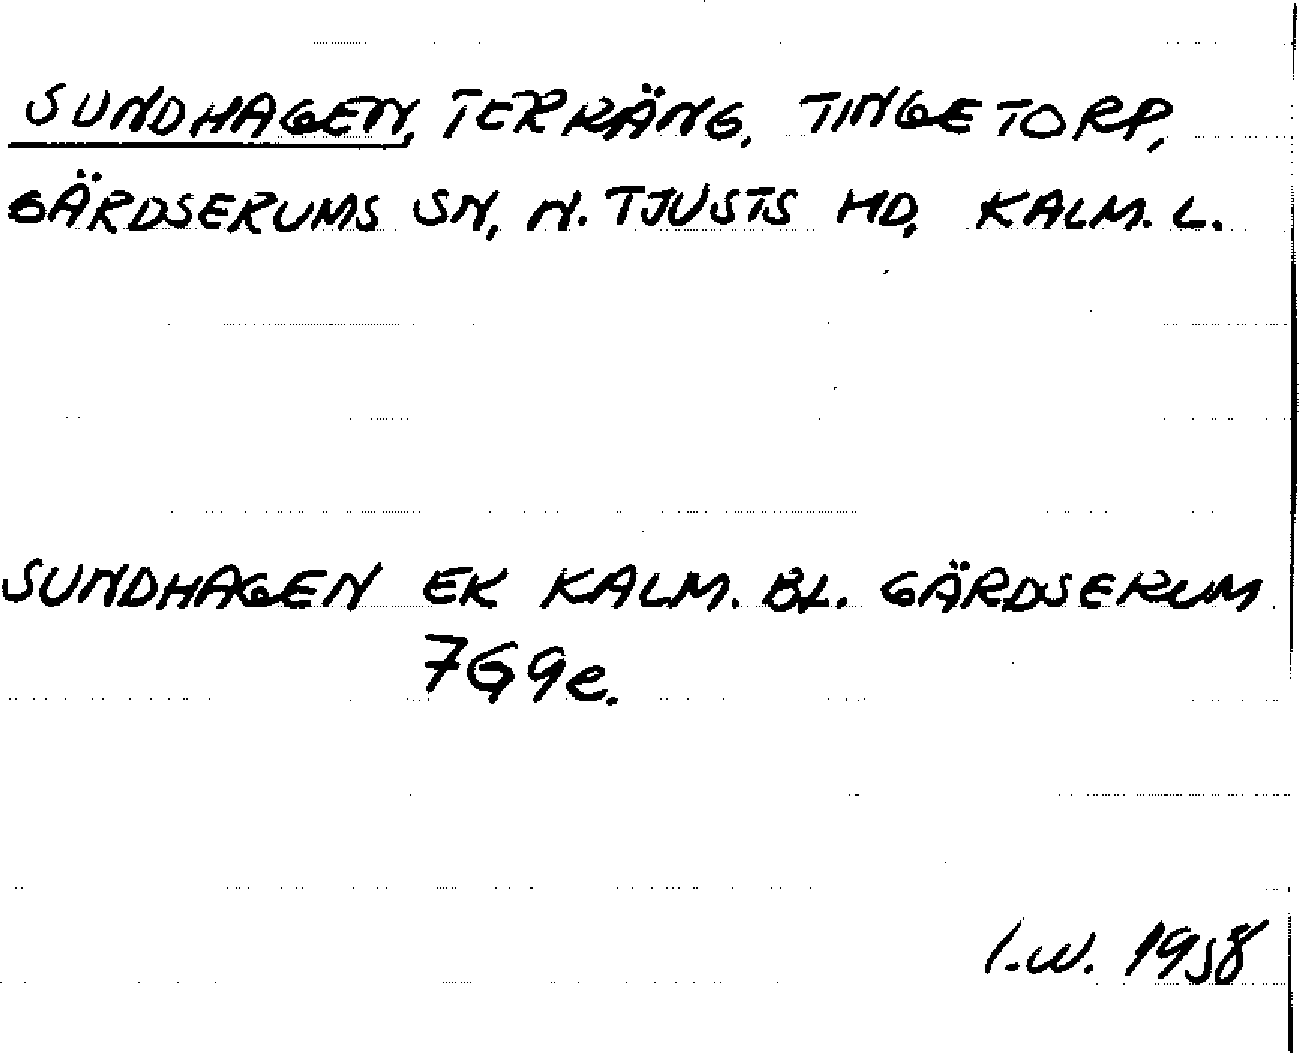 SUNDHAGEN, TERRÄNG, TINGETORP,
GÄRDSERUMS SN, N. TJUSTS HD, KALM. L.
SUNDHAGEN EK KALM. BL. GÄRDSERUM
7G9e.
I.W. 1958